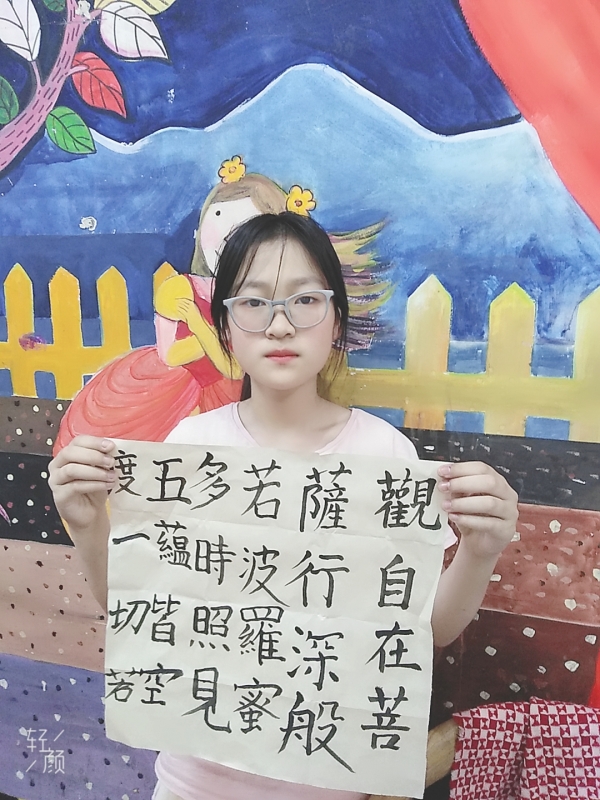 觀自在菩
薩行深般
若波羅蜜
多時照見
五蘊皆空
度一切若
轻颜